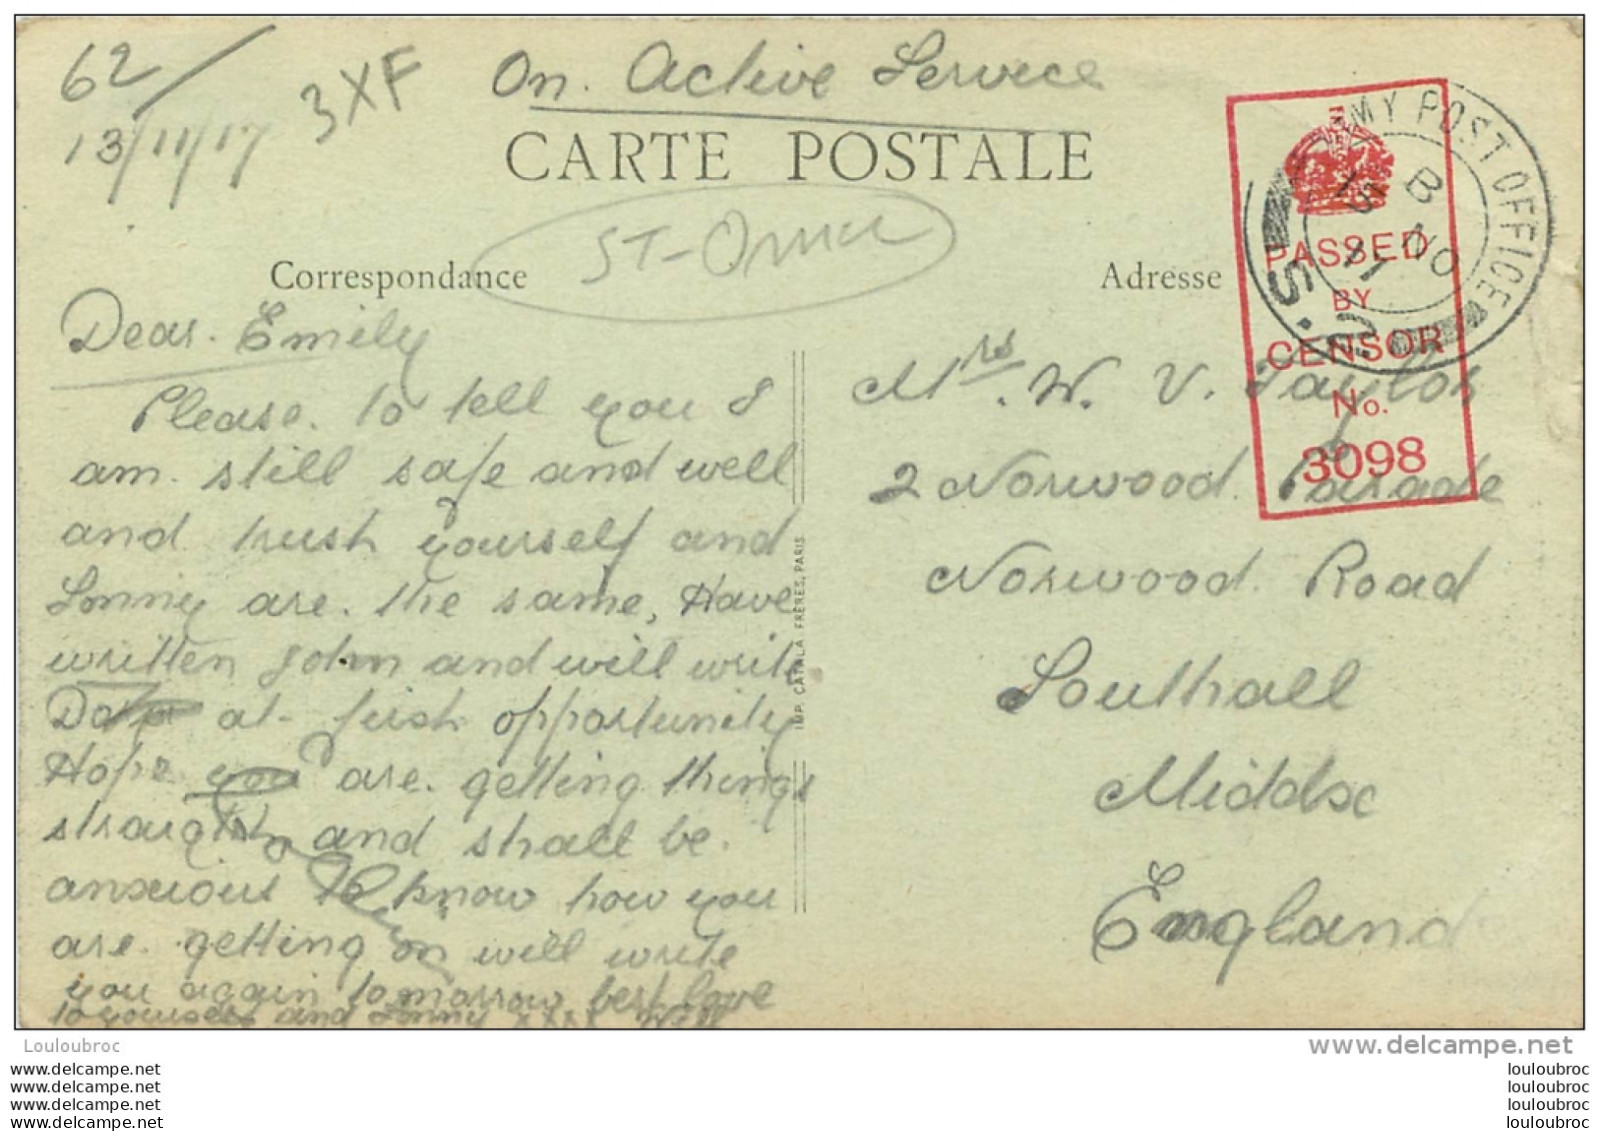 62/
13/11/17
3XF
On. Active Service
CARTE POSTALE
ST-Omer
Correspondance
Adresse
Dear. Emily
Please. to tell you I
am. still safe and well
and trust yourself and
Sonny are. the same, Have
written John and will write
at first opportunity
Hope you are. getting things
straight and shall be.
anxious to know how you
are getting on will write
you again tomorrow best love
to yourself and Sonny xxxx Will
IMP. CATALA FRERES, PARIS
Mrs. W. V. Taylor
2 Norwood. Parade
Norwood. Road
Southall
Middx
England
PASSED
BY
CENSOR
No.
3098
MY POST OFFICE
B
15 NO
17
S.
Louloubroc
www.delcampe.net
www.delcampe.net
www.delcampe.net
www.delcampe.net
www.delcampe.net
louloubroc
louloubroc
louloubroc
louloubroc